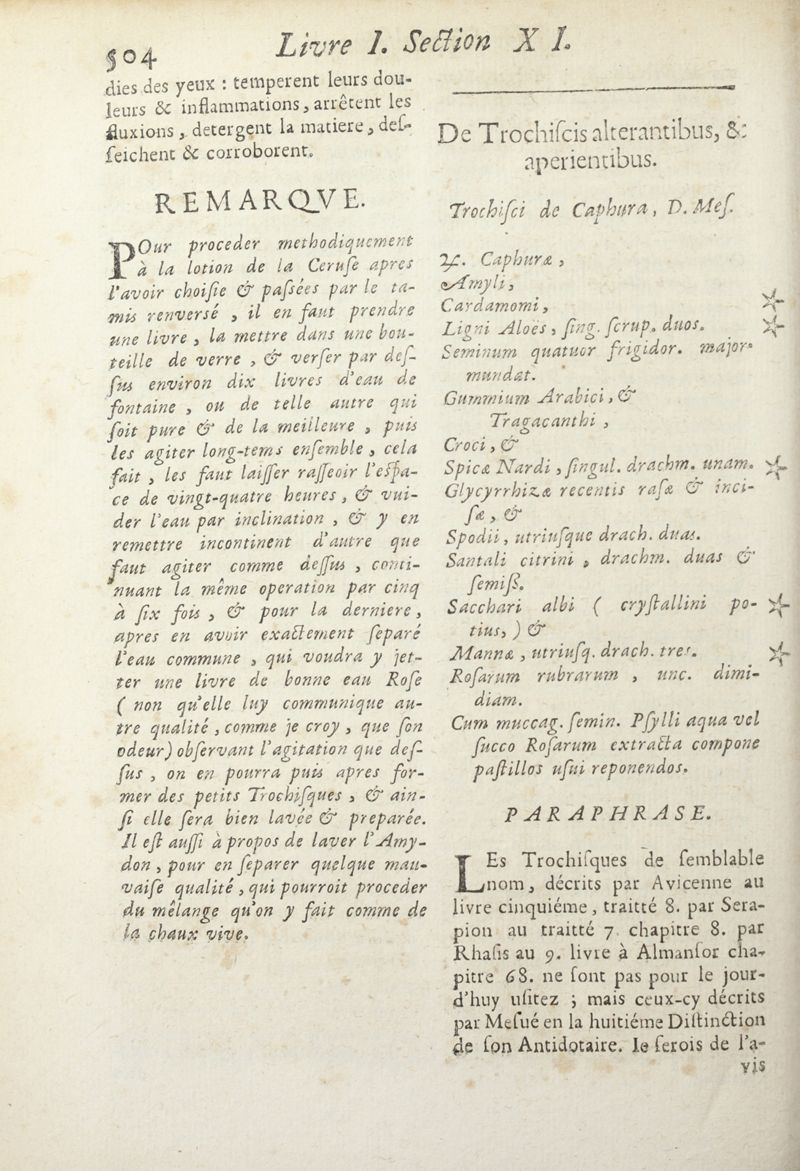 504
Livre I. Section XI.
dies des yeux : temperent leurs dou-
leurs & inflammations, arrêtent les
fluxions, detergent la matiere, des-
seichent & corroborent.
REMARQVE.
POur proceder methodiquement
à la lotion de la Ceruse apres
l'avoir choisie & passées par le ta-
mis renversé, il en faut prendre
une livre, la mettre dans une bou-
teille de verre, & verser par des-
sus environ dix livres d'eau de
fontaine, ou de telle autre qui
soit pure & de la meilleure, puis
les agiter long-tems ensemble, cela
fait, les faut laisser rasseoir l'espa-
ce de vingt-quatre heures, & vui-
der l'eau par inclination, & y en
remettre incontinent d'autre que
faut agiter comme dessus, conti-
nuant la même operation par cinq
à six fois, & pour la derniere,
apres en avoir exactement separé
l'eau commune, qui voudra y jet-
ter une livre de bonne eau Rose
( non qu'elle luy communique au-
tre qualité, comme je croy, que son
odeur) observant l'agitation que des-
sus, on en pourra puis apres for-
mer des petits Trochisques, & ain-
si elle sera bien lavée & preparée.
Il est aussi à propos de laver l'Amy-
don, pour en separer quelque mau-
vaise qualité, qui pourroit proceder
du mêlange qu'on y fait comme de
la chaux vive.
De Trochiscis alterantibus, &
aperientibus.
Trochisci de Caphura, D. Mes.
℞. Caphuræ,
Amyli,
Cardamomi,
Ligni Aloës, sing. scrup. duos.
Seminum quatuor frigidor. major.
mundat.
Gummium Arabici, &
Tragacanthi,
Croci, &
Spicæ Nardi, singul. drachm. unam.
Glycyrrhizæ recentis rasæ & inci-
sæ, &
Spodii, utriusque drach. duas.
Santali citrini, drachm. duas &
semiß.
Sacchari albi ( crystallini po-
tius, ) &
Mannæ, utriusq. drach. tres.
Rosarum rubrarum, unc. dimi-
diam.
Cum muccag. semin. Psylli aqua vel
succo Rosarum extracta compone
pastillos usui reponendos.
PARAPHRASE.
LEs Trochisques de semblable
nom, décrits par Avicenne au
livre cinquiéme, traitté 8. par Sera-
pion au traitté 7. chapitre 8. par
Rhasis au 9. livre à Almansor cha-
pitre 68. ne sont pas pour le jour-
d'huy usitez ; mais ceux-cy décrits
par Mesué en la huitiéme Distinction
de son Antidotaire. Ie serois de l'a-
vis